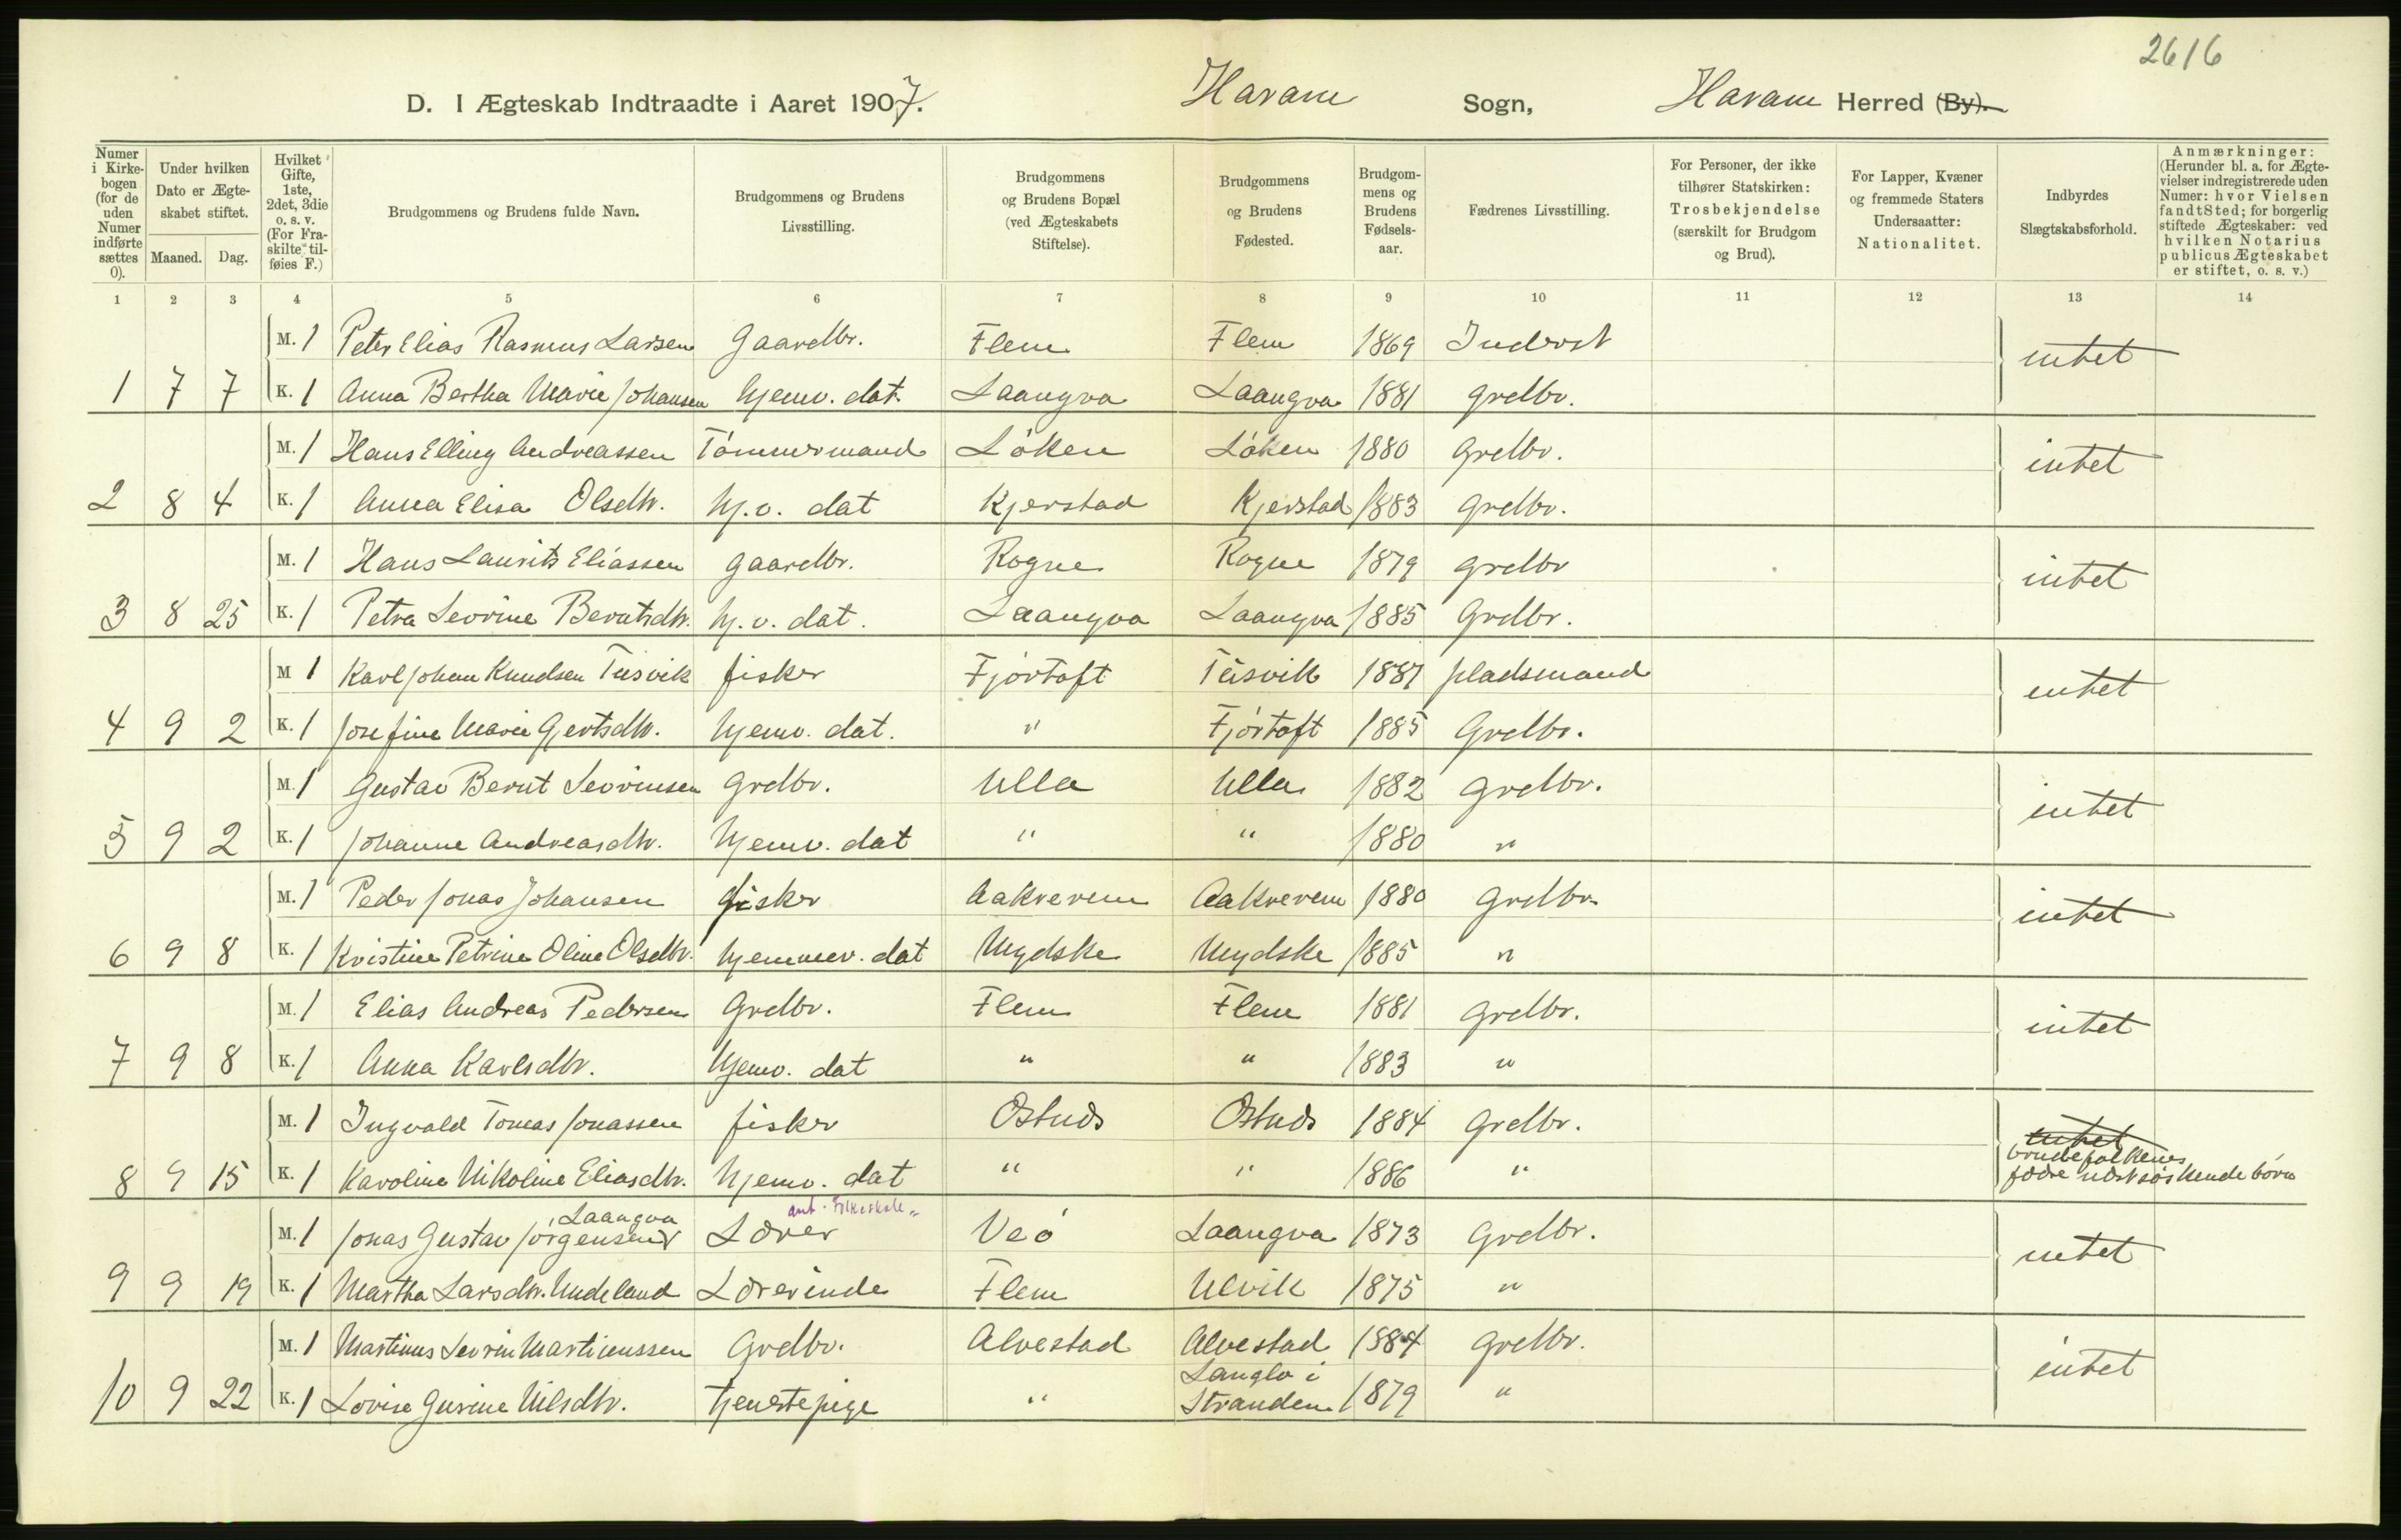 2616
D. I Ægteskab Indtraadte i Aaret 1907. Haram Sogn, Haram Herred (By).
Numer i Kirkebogen (for de uden Numer indførte sættes 0).
Under hvilken Dato er Ægteskabet stiftet.
Maaned. Dag.
Hvilket Gifte, 1ste, 2det, 3die o. s. v. (For Fraskilte tilføies F.)
Brudgommens og Brudens fulde Navn.
Brudgommens og Brudens Livsstilling.
Brudgommens og Brudens Bopæl (ved Ægteskabets Stiftelse).
Brudgommens og Brudens Fødested.
Brudgommens og Brudens Fødselsaar.
Fædrenes Livsstilling.
For Personer, der ikke tilhører Statskirken: Trosbekjendelse (særskilt for Brudgom og Brud).
For Lapper, Kvæner og fremmede Staters Undersaatter: Nationalitet.
Indbyrdes Slægtskabsforhold.
Anmærkninger: (Herunder bl. a. for Ægtevielser indregistrerede uden Numer: hvor Vielsen fandt Sted; for borgerlig stiftede Ægteskaber: ved hvilken Notarius publicus Ægteskabet er stiftet, o. s. v.)
1 2 3 4 5 6 7 8 9 10 11 12 13 14
M. 1 Peter Elias Rasmus Larsen Gaardbr. Flem Flem 1869 Inderst intet
1 7 7 K. 1 Anna Bertha Marie Johansen hjemv. dat. Laangva Laangva 1881 grdbr.
M. 1 Hans Elling Andreassen Tömmermand Löken Löken 1880 Grdbr. intet
2 8 4 K. 1 Anna Elisa Olsdtr. hj.v. dat Kjerstad Kjerstad 1883 Grdbr.
M. 1 Hans Laurits Eliassen gaardbr. Rogne Rogne 1879 grdbr intet
3 8 25 K. 1 Petra Sevrine Berntsdtr. hj.v. dat. Laangva Laangva 1885 Grdbr.
M 1 Karl Johan Knudsen Tusvik fisker Fjörtoft Tusvik 1881 pladsmand intet
4 9 2 K. 1 Josefine Marie Gjertsdtr. hjemv. dat. " Fjörtoft 1885 Grdbr.
M. 1 Gustav Bernt Sevrinsen Grdbr. Ulla Ulla 1882 Grdbr. intet
5 9 2 K. 1 Johanne Andreasdtr. hjemv. dat " " 1880 "
M. 1 Peder Jonas Johansen fisker Aakrerem Aakrerem 1880 Grdbr. intet
6 9 8 K. 1 Kristine Petrine Oline Olsdtr. hjemmev. dat Uydske Uydske 1885 "
M. 1 Elias Andreas Pedersen Grdbr. Flem Flem 1881 Grdbr. intet
7 9 8 K. 1 Anna Karlsdtr. hjemv. dat " " 1883 "
M. 1 Ingvald Tomas Jonassen fisker Ostnds Ostnds 1884 Grdbr. intet
brudefolkenes
8 9 15 K. 1 Karoline Nikoline Eliasdtr. hjemv. dat " " 1886 " fædre næstsöskendebörn
Laangva ant. Folkeskole-
M. 1 Jonas Gustav Jörgensen Lærer Veö Laangva 1873 Grdbr. intet
9 9 19 K. 1 Martha Larsdtr. Undeland Lærerinde Flem Ulvik 1875 "
M. 1 Martinus Sevrin Martinussen Grdbr. Alvestad Alvestad 1884 Grdbr. intet
Langlo i
10 9 22 K. 1 Lovise Gurine Nilsdtr. tjenestepige " Stranden 1879 "